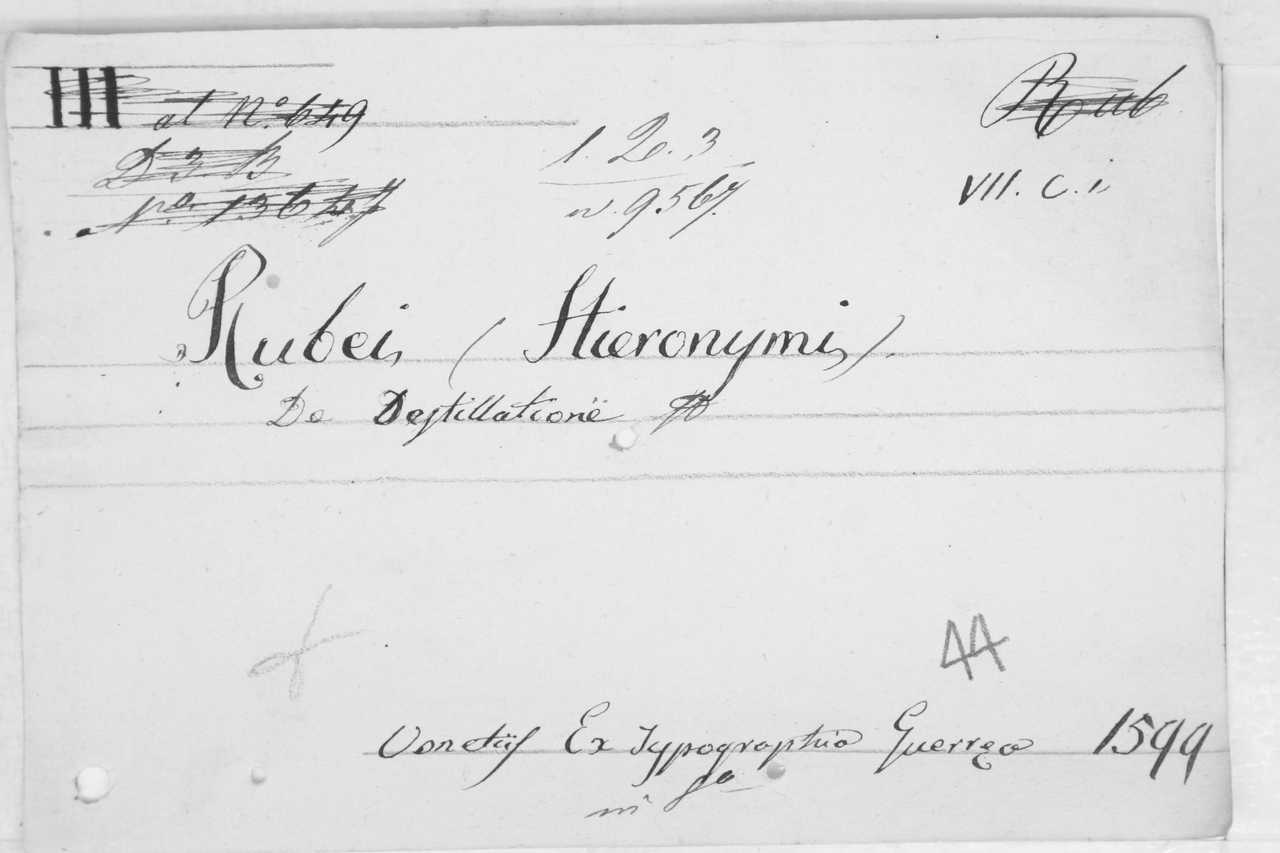 III al N.º 649
Rub
D 3 B
1. 2. 3
n. 9567.
VII. C. i
Rubei, (Hieronymi,).
De Destillatione
44
Venetiis Ex Typographia Guerrea 1599
in fo